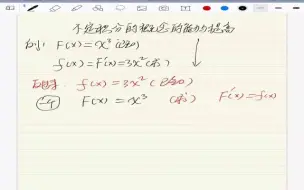 不定积分的概念的能力提高
例: F(x)=x³(已知)
f(x)=F'(x)=3x²(求)
f(x)=3x²(已知)
F(x)=x³ (求) F'(x)=f(x)